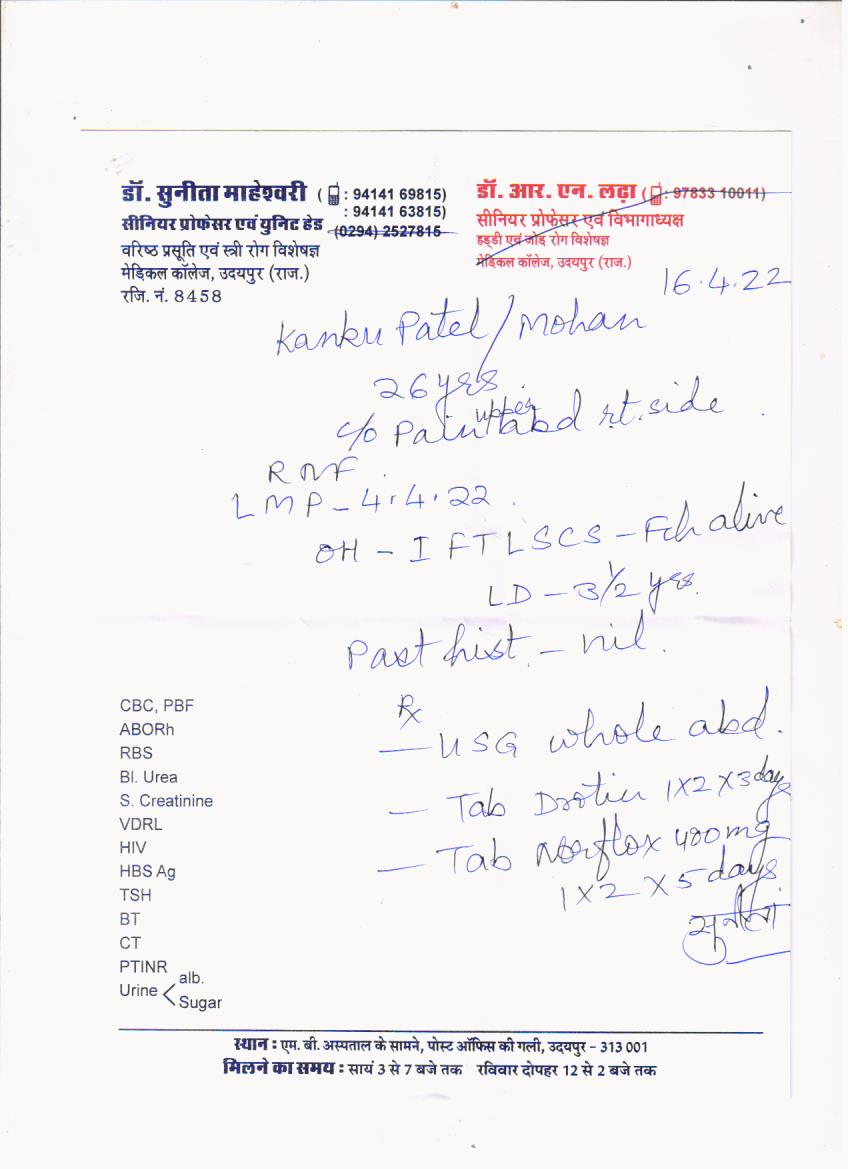 डॉ. सुनीता माहेश्वरी ( : 94141 69815)
: 94141 63815)
सीनियर प्रोफेसर एवं युनिट हेड (0294) 2527815
वरिष्ठ प्रसूति एवं स्त्री रोग विशेषज्ञ
मेडिकल कॉलेज, उदयपुर (राज.)
रजि. नं. 8458
डॉ. आर. एन. लढ़ा ( : 97833 10011)
सीनियर प्रोफेसर एवं विभागाध्यक्ष
हड्डी एवं जोड़ रोग विशेषज्ञ
मेडिकल कॉलेज, उदयपुर (राज.)
16.4.22
Kanku Patel / Mohan
26 yrs
c/o Pain upper abd rt. side
RMF
LMP - 4.4.22
OH - I FTLSCS - Fch alive
LD - 3 1/2 yrs.
Past hist. - nil.
Rx
- USG whole abd.
- Tab Drotin 1x2x3 days
- Tab Norflox 400mg
1x2x5 days
सुनीता
CBC, PBF
ABORh
RBS
Bl. Urea
S. Creatinine
VDRL
HIV
HBS Ag
TSH
BT
CT
PTINR
Urine < alb.
Sugar
स्थान : एम. बी. अस्पताल के सामने, पोस्ट ऑफिस की गली, उदयपुर - 313 001
मिलने का समय : सायं 3 से 7 बजे तक रविवार दोपहर 12 से 2 बजे तक